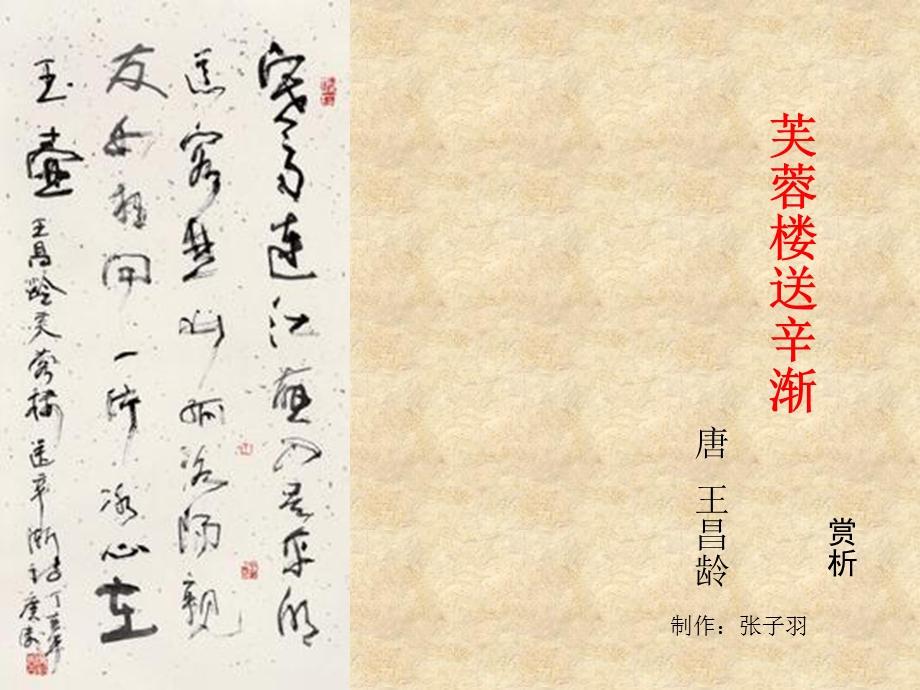 芙蓉楼送辛渐
唐 王昌龄
赏析
制作：张子羽
寒雨連江夜入吴平明
送客楚山孤洛陽親
友如相問一片冰心在
玉壺
王昌龄芙蓉楼送辛渐诗
丁亥年